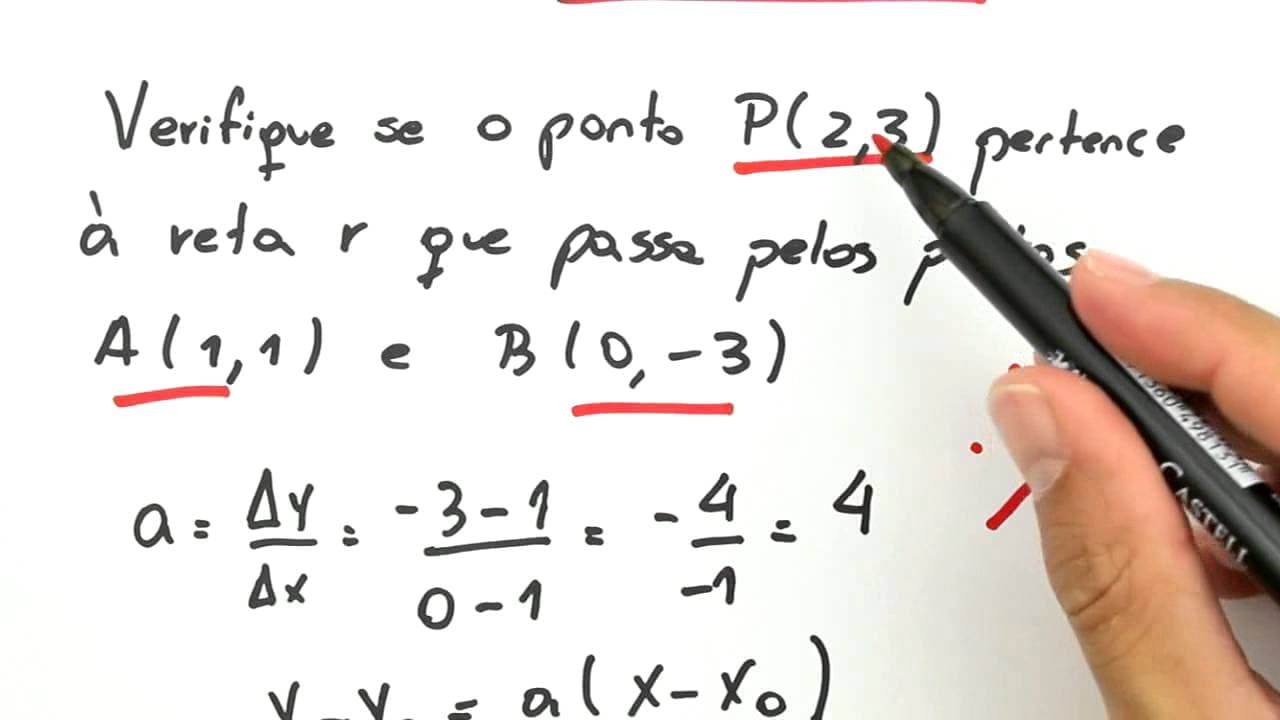 Verifique se o ponto P(2,3) pertence
à reta r que passa pelos
A(1,1) e B(0,-3)
a = Δy/Δx = -3-1/0-1 = -4/-1 = 4
= a(x-x₀)
CASTELL